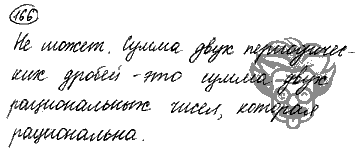 166
Не может. Сумма двух периодичес-
ких дробей - это сумма двух
рациональных чисел, которая
рациональна.